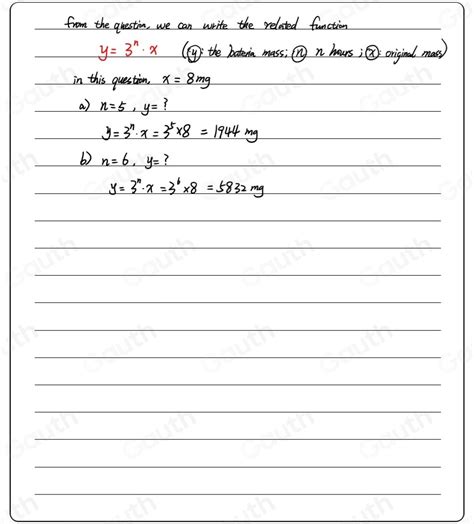 from the question, we can write the related function
y = 3ⁿ · x (y: the bateria mass; n n hours; x: original mass)
in this question, x = 8mg
a) n=5, y=?
y = 3ⁿ · x = 3⁵ × 8 = 1944 mg
b) n=6, y=?
y = 3ⁿ · x = 3⁶ × 8 = 5832 mg